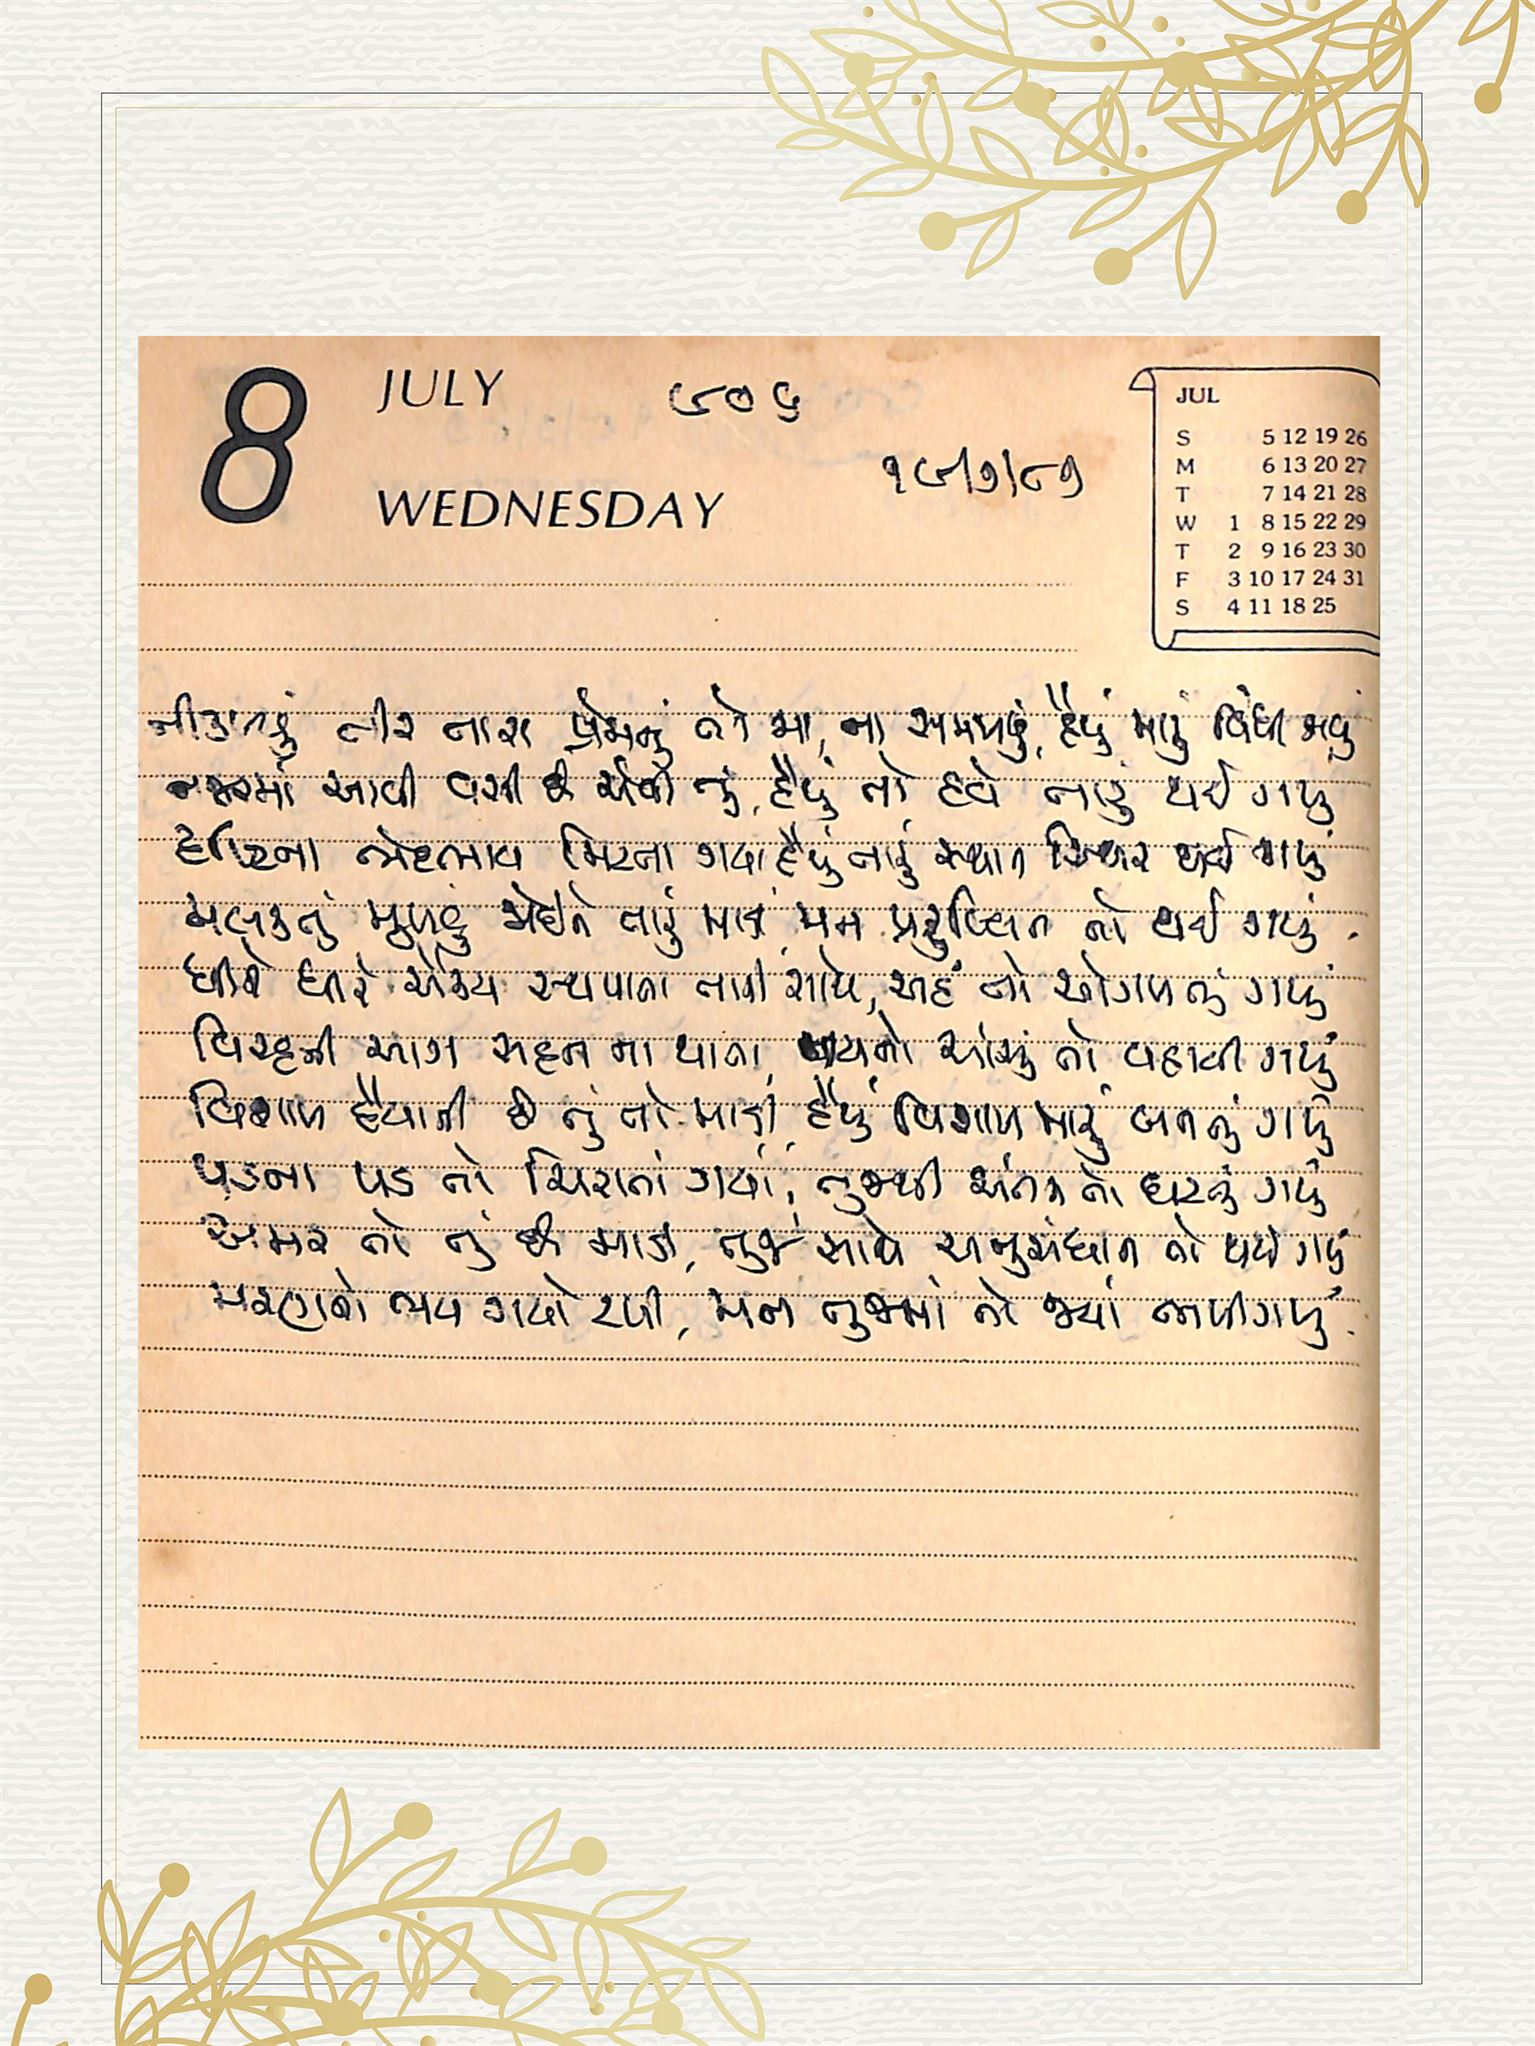 8 JULY ૯૦૬
WEDNESDAY ૧૯/૭/૮૭
JUL
S 5 12 19 26
M 6 13 20 27
T 7 14 21 28
W 1 8 15 22 29
T 2 9 16 23 30
F 3 10 17 24 31
S 4 11 18 25
નીકળ્યું તીર તારા પ્રેમનું તો મા, ના સમજાયું, હૈયું મારું વિંધી ગયું
નજરમાં આવી વસી છે એવી તું, હૈયું તો હવે તારું થઈ ગયું
ભેદભાવ મિટતા ગયા હૈયું તારું સ્થાન સ્થિર થઈ ગયું
મલકતું મુખડું જોઈને તારું માત, મન પ્રફુલ્લિત તો થઈ ગયું.
ધીરે ધીરે ઐક્ય સ્થપાતા તારી સાથે, અહં તો ઓગળતું ગયું
વિરહની આગ સહન ના થાતા, નયનો આંસુ તો વહાવી ગયું
વિશાળ હૈયાની છે તું તો માડી, હૈયું વિશાળ મારું બનતું ગયું
પડના પડ તો ચિરાતાં ગયાં, તુજથી અંતર તો ઘટતું ગયું
અમર તો તું છે માડી, તુજ સાથે અનુસંધાન તો થઈ ગયું
મરણનો ભય ગયો ટળી, મન તુજમાં તો જ્યાં મળી ગયું.